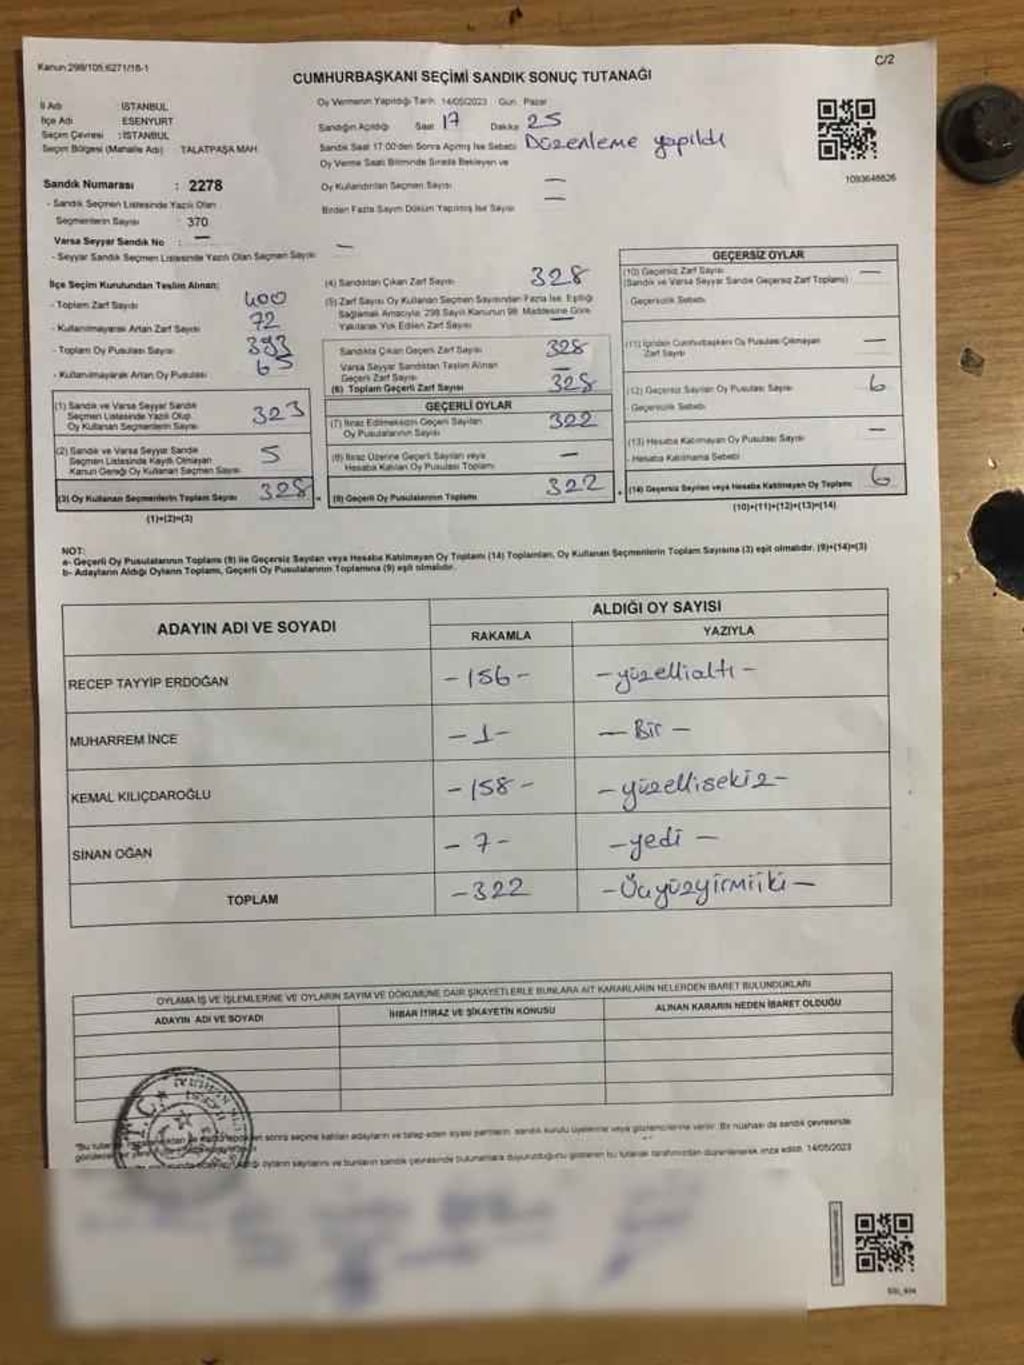 Kanun 298/105,6271/18-1
C/2
CUMHURBAŞKANI SEÇİMİ SANDIK SONUÇ TUTANAĞI
İl Adı : İSTANBUL
İlçe Adı ESENYURT
Seçim Çevresi : İSTANBUL
Seçim Bölgesi (Mahalle Adı) TALATPAŞA MAH.
Oy Vermenin Yapıldığı Tarih 14/05/2023 Gün: Pazar
Sandığın Açıldığı Saat 17 Dakika 25
Sandık Saat 17:00'den Sonra Açılmış İse Sebebi Düzenleme yapıldı
Oy Verme Saati Bitiminde Sırada Bekleyen ve
Oy Kullandırılan Seçmen Sayısı —
Birden Fazla Sayım Döküm Yapılmış İse Sayısı —
1093646626
Sandık Numarası : 2278
- Sandık Seçmen Listesinde Yazılı Olan
Seçmenlerin Sayısı 370
Varsa Seyyar Sandık No : —
- Seyyar Sandık Seçmen Listesinde Yazılı Olan Seçmen Sayısı —
İlçe Seçim Kurulundan Teslim Alınan:
- Toplam Zarf Sayısı 400
- Kullanılmayarak Artan Zarf Sayısı 72
- Toplam Oy Pusulası Sayısı 393
- Kullanılmayarak Artan Oy Pusulası 65
(1) Sandık ve Varsa Seyyar Sandık
Seçmen Listesinde Yazılı Olup
Oy Kullanan Seçmenlerin Sayısı 323
(2) Sandık ve Varsa Seyyar Sandık
Seçmen Listesinde Kayıtlı Olmayan
Kanun Gereği Oy Kullanan Seçmen Sayısı 5
(3) Oy Kullanan Seçmenlerin Toplam Sayısı 328
(1)+(2)=(3)
(4) Sandıktan Çıkan Zarf Sayısı 328
(5) Zarf Sayısı Oy Kullanan Seçmen Sayısından Fazla İse, Eşitliği
Sağlamak Amacıyla, 298 Sayılı Kanunun 98. Maddesine Göre
Yakılarak Yok Edilen Zarf Sayısı —
Sandıkta Çıkan Geçerli Zarf Sayısı 328
Varsa Seyyar Sandıktan Teslim Alınan
Geçerli Zarf Sayısı —
(6) Toplam Geçerli Zarf Sayısı 328
GEÇERLİ OYLAR
(7) İtiraz Edilmeksizin Geçerli Sayılan
Oy Pusulalarının Sayısı 322
(8) İtiraz Üzerine Geçerli Sayılan veya
Hesaba Katılan Oy Pusulası Toplamı —
(9) Geçerli Oy Pusulalarının Toplamı 322
GEÇERSİZ OYLAR
(10) Geçersiz Zarf Sayısı —
(Sandık ve Varsa Seyyar Sandık Geçersiz Zarf Toplamı)
Geçersizlik Sebebi
(11) İçinden Cumhurbaşkanı Oy Pusulası Çıkmayan
Zarf Sayısı —
(12) Geçersiz Sayılan Oy Pusulası Sayısı 6
Geçersizlik Sebebi
(13) Hesaba Katılmayan Oy Pusulası Sayısı —
- Hesaba Katılmama Sebebi
(14) Geçersiz Sayılan veya Hesaba Katılmayan Oy Toplamı 6
(10)+(11)+(12)+(13)=(14)
NOT:
a- Geçerli Oy Pusulalarının Toplamı (9) ile Geçersiz Sayılan veya Hesaba Katılmayan Oy Toplamı (14) Toplamları, Oy Kullanan Seçmenlerin Toplam Sayısına (3) eşit olmalıdır. (9)+(14)=(3)
b- Adayların Aldığı Oyların Toplamı, Geçerli Oy Pusulalarının Toplamına (9) eşit olmalıdır.
ADAYIN ADI VE SOYADI
ALDIĞI OY SAYISI
RAKAMLA YAZIYLA
RECEP TAYYİP ERDOĞAN -156- -yüzellialtı-
MUHARREM İNCE -1- -Bir-
KEMAL KILIÇDAROĞLU -158- -yüzellisekiz-
SİNAN OĞAN -7- -yedi-
TOPLAM -322 -Üçyüzyirmiiki-
OYLAMA İŞ VE İŞLEMLERİNE VE OYLARIN SAYIM VE DÖKÜMÜNE DAİR ŞİKAYETLERLE BUNLARA AİT KARARLARIN NELERDEN İBARET BULUNDUKLARI
ADAYIN ADI VE SOYADI İHBAR İTİRAZ VE ŞİKAYETİN KONUSU ALINAN KARARIN NEDEN İBARET OLDUĞU
T.C.
sonra seçime katılan adayların ve talep eden siyasi partilerin sandık kurulu üyelerine veya gözlemcilerine verilir. Bir nüshası da sandık çevresinde
oyların sayılarını ve bunların sandık çevresinde bulunanlara duyurulduğunu gösteren bu tutanak tarafımızdan düzenlenerek imza edildi. 14/05/2023